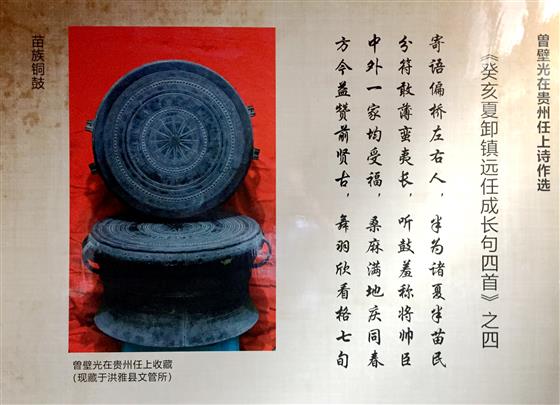 曾璧光在贵州任上诗作选
《癸亥夏卸镇远任成长句四首》之四
寄语偏桥左右人，半为诸夏半苗民
分符敢薄蛮夷长，听鼓羞称将帅臣
中外一家均受福，桑麻满地庆同春
方今益赞前贤古，舞羽欣看格七旬
苗族铜鼓
曾璧光在贵州任上收藏
（现藏于洪雅县文管所）